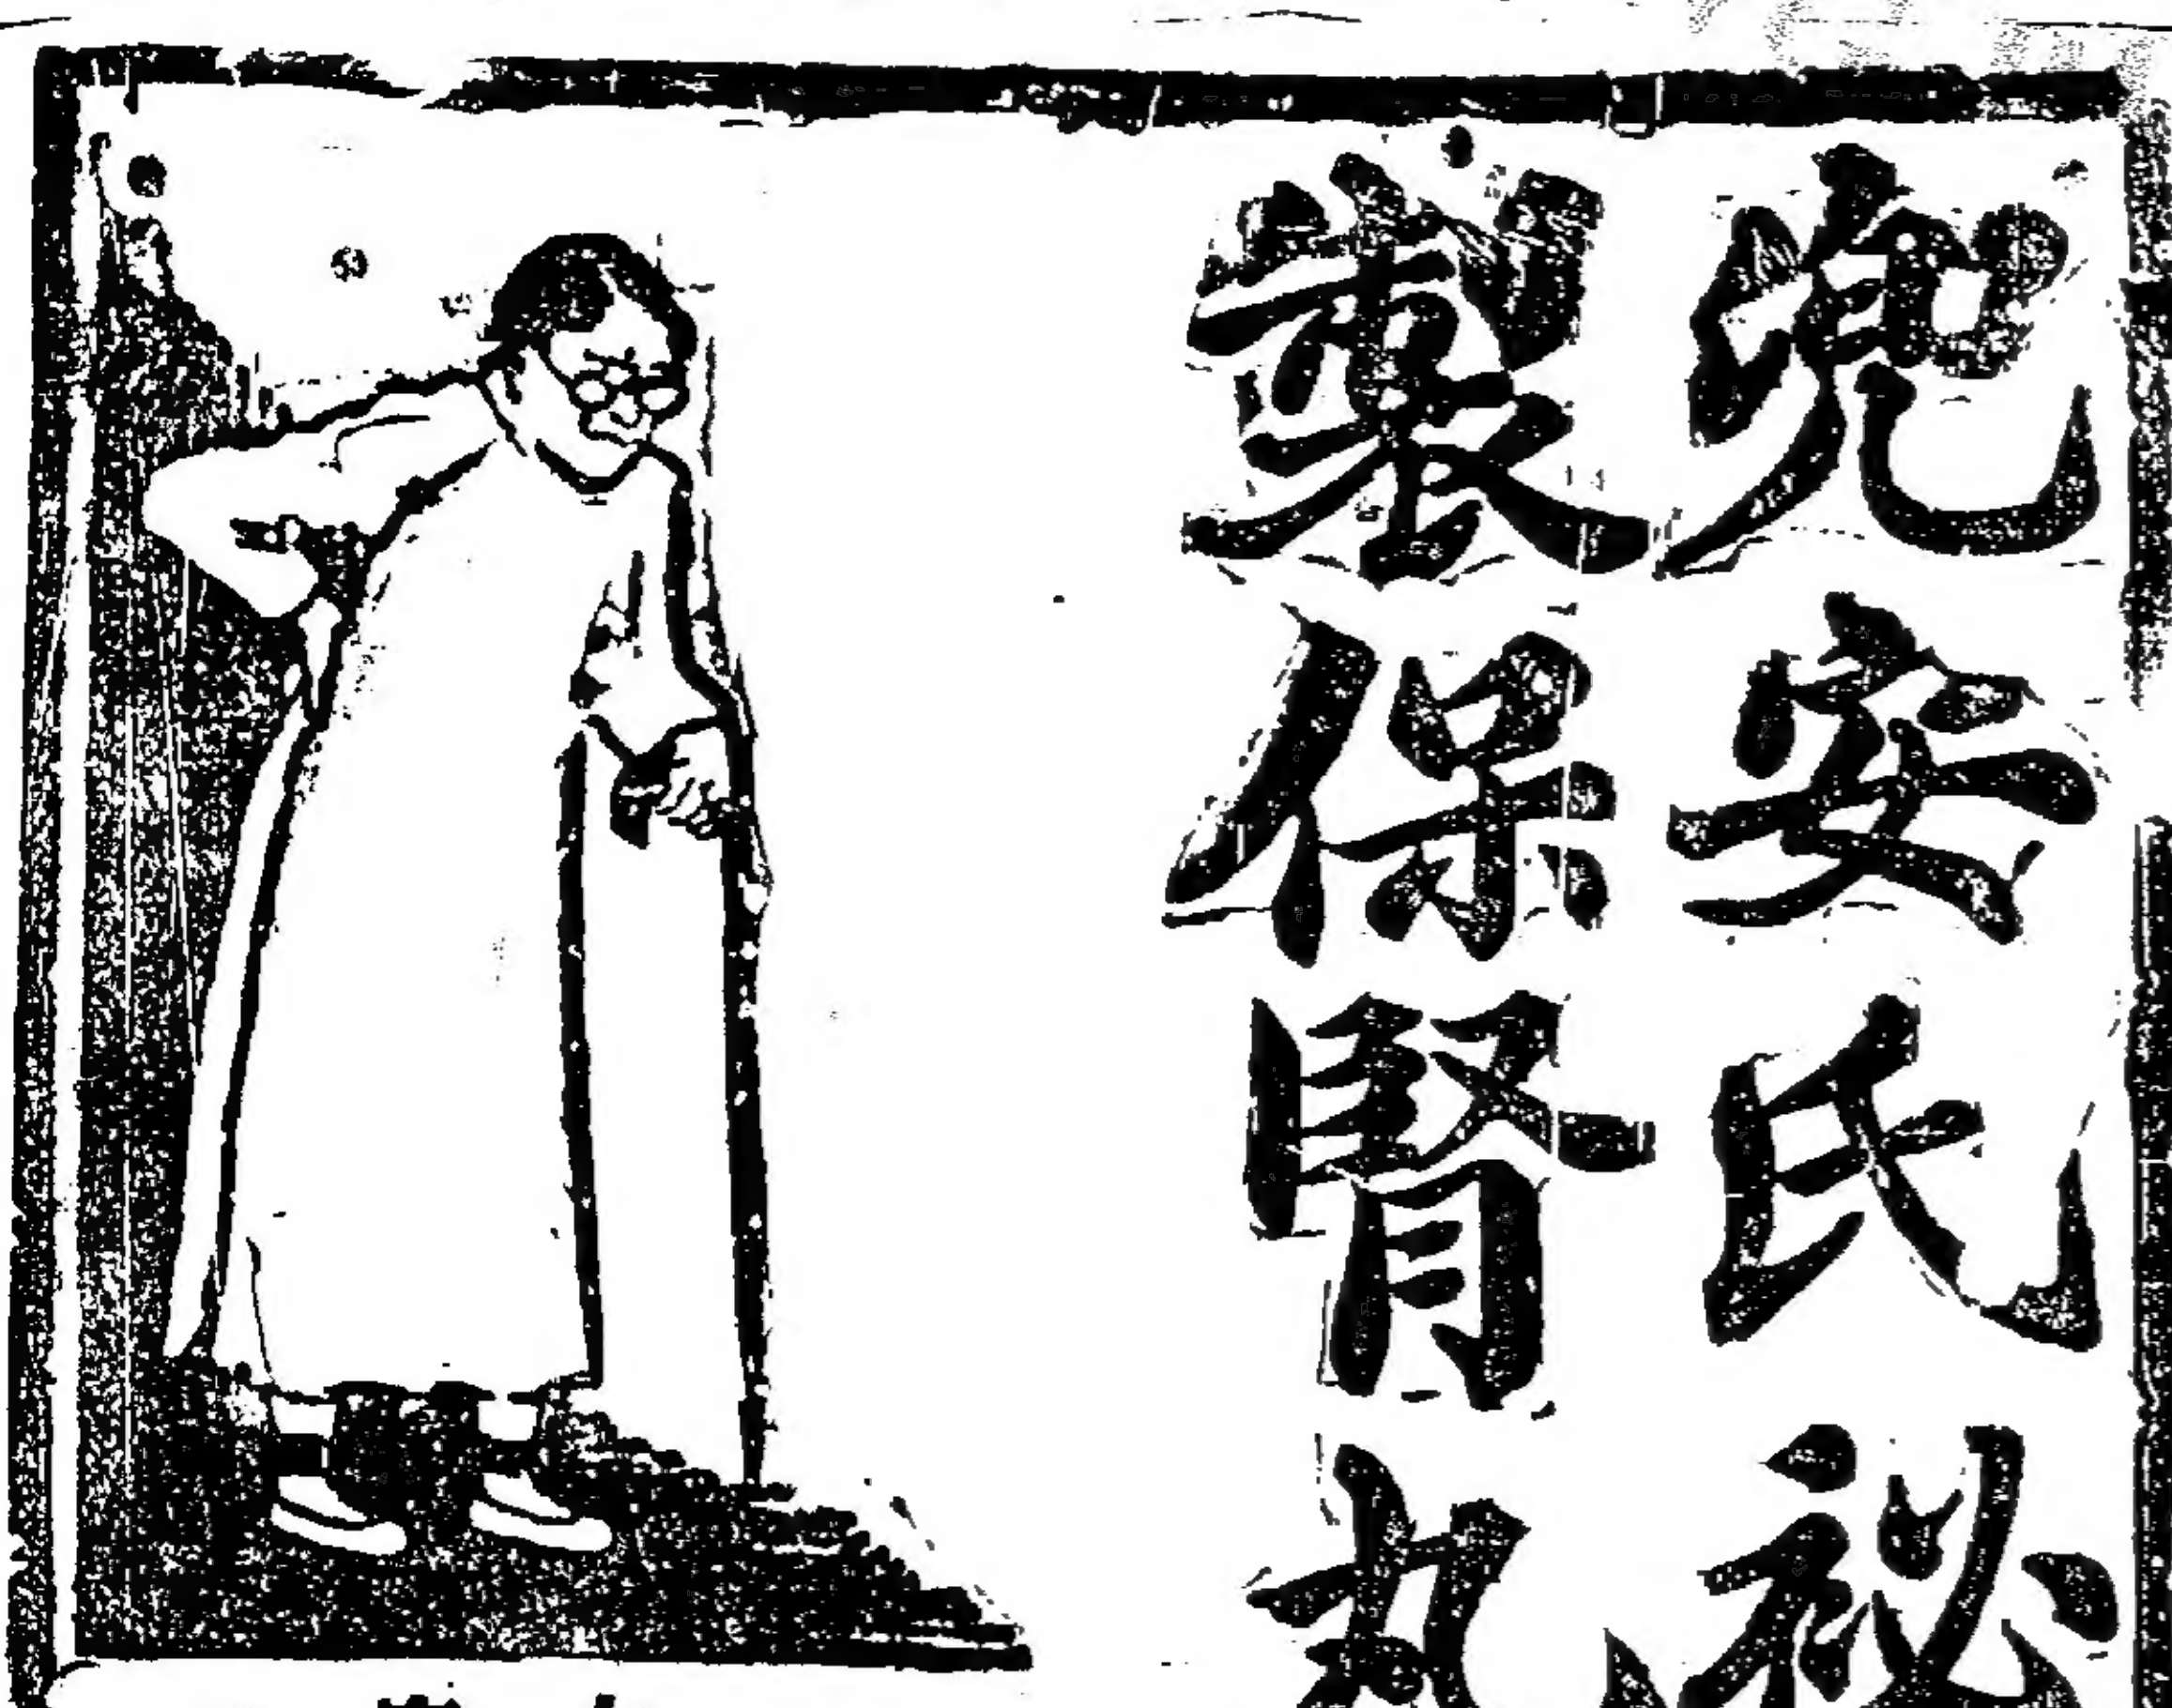 兜安氏祕
製保腎丸